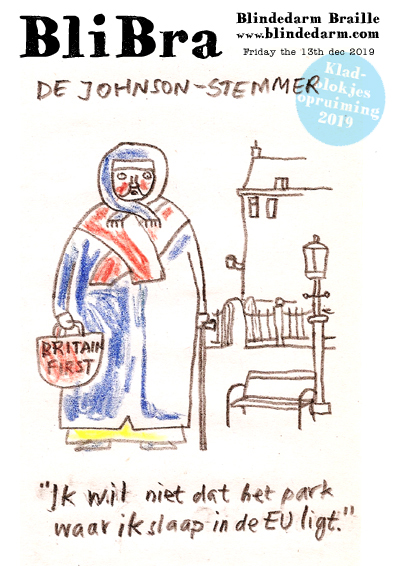 BliBra
Blindedarm Braille
www.blindedarm.com
Friday the 13th dec 2019
DE JOHNSON-STEMMER
Klad-
blokjes
opruiming
2019
BRITAIN
FIRST
"Ik wil niet dat het park
waar ik slaap in de EU ligt."